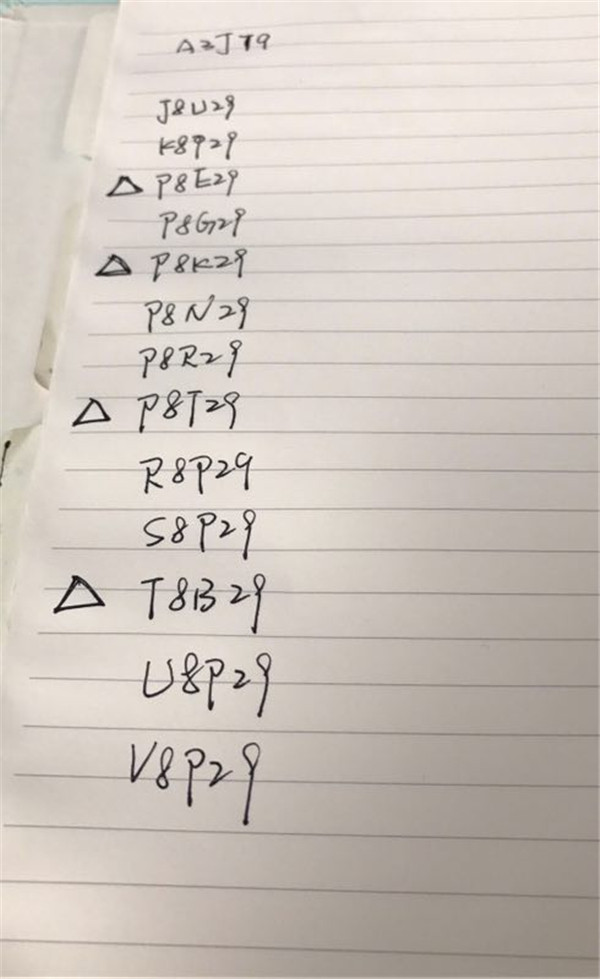 A2JT9
J8U29
K8P29
△ P8E29
P8G29
△ P8K29
P8N29
P8R29
△ P8T29
R8P29
S8P29
△ T8B29
U8P29
V8P29